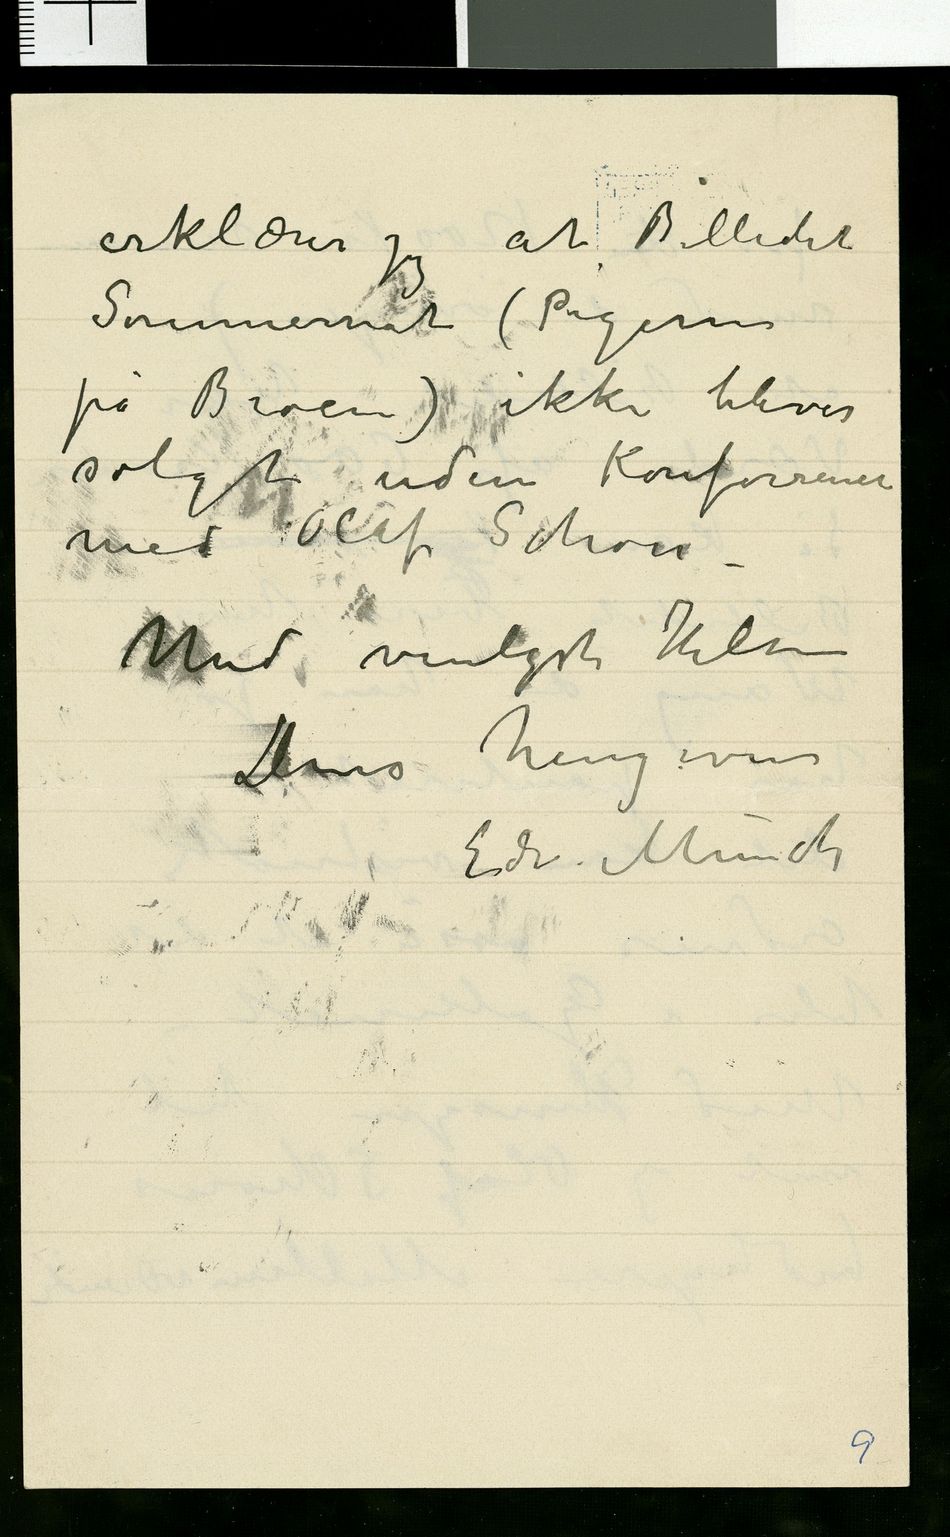 erklærer jeg at Billedet
Sommernat (Pigerne
på Broen) ikke bliver
solgt uden Konferrence
med Olaf Schou _
Med venligst Hilsen
Deres hengivne
Edv. Munch
9